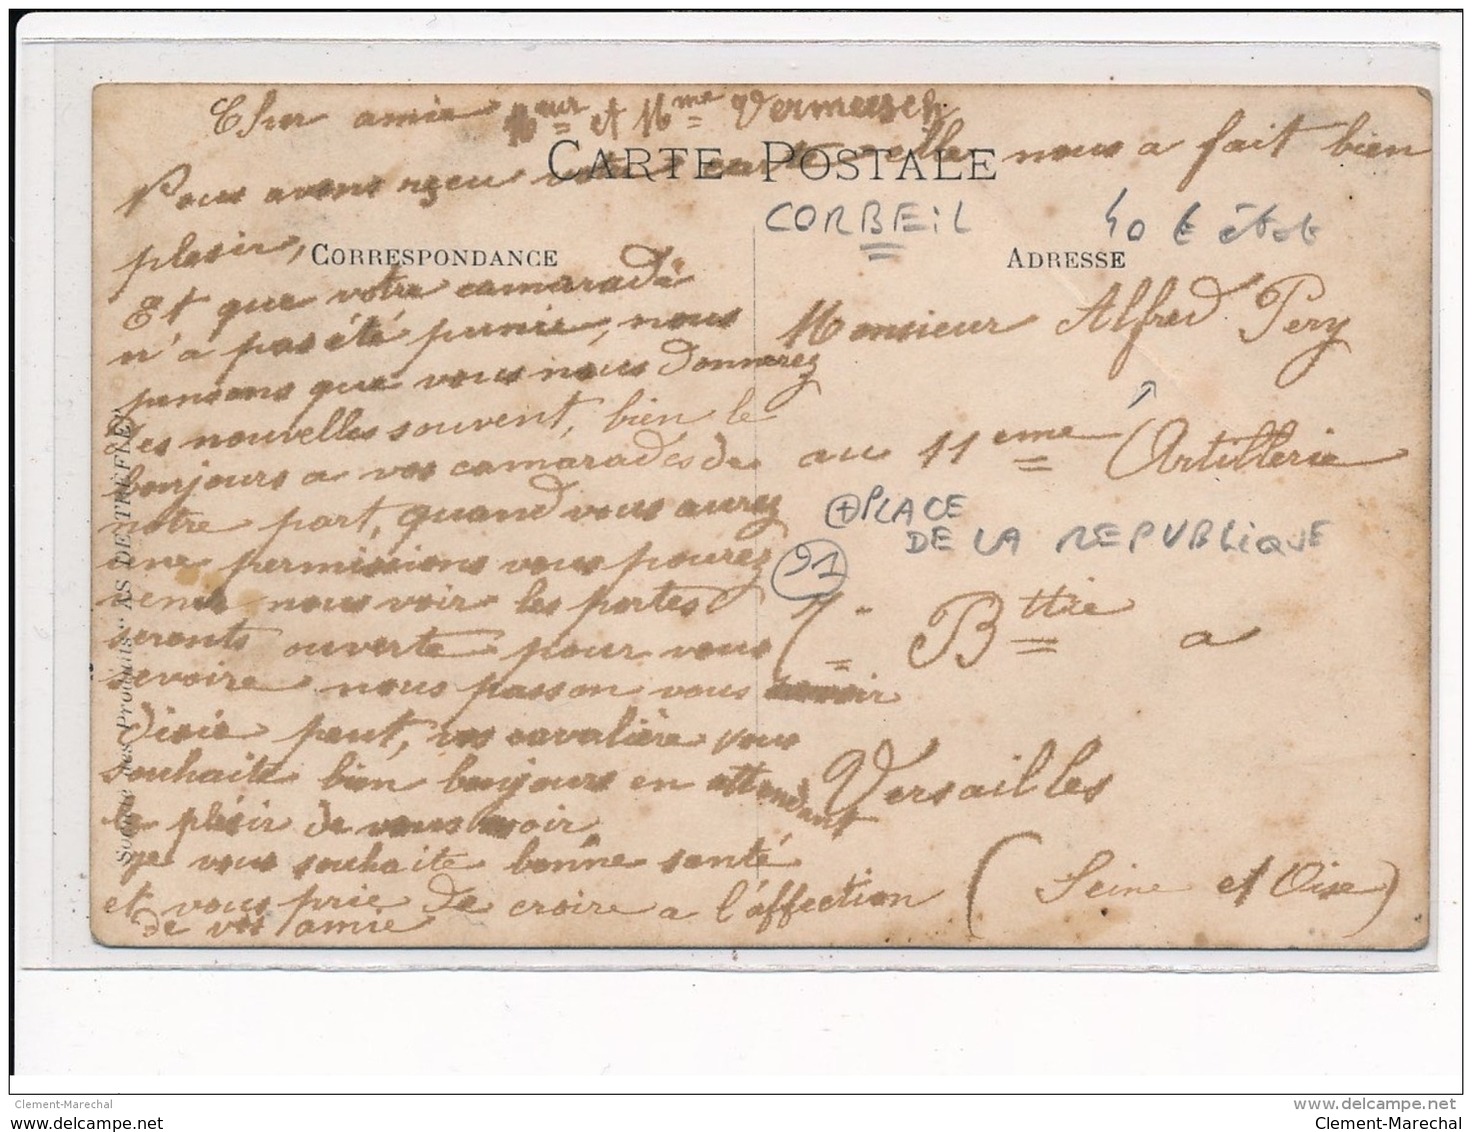 Cher amie Meur et Mme Vermeesch
CARTE POSTALE
Nous avons reçeu votre carte elle nous a fait bien
plesir,
CORRESPONDANCE
Et que votre camarade
n'a pas été punie, nous
pensons que vous nous donnerez
des nouvelles souvent, bien le
bonjours a vos camarades de
notre part, quand vous aurez
une permissions vous pourez
venir nous voir les portes
seronts ouverte pour vous
revoire nous passon vous
disie peut, vos cavalière vous
souhaite bien bonjours en attendant
le plésir de vous voir
je vous souhaite bonne santé
et vous prie de croire a l'affection
de vos amie
Société des Produits "AS DE TREFFLE"
CORBEIL
40 € état
ADRESSE
Monsieur Alfred Pery
au 11eme Artillerie
+ PLACE
DE LA REPUBLIQUE
91
7 Bttie a
Versailles
(Seine et Oise)
Clement-Marechal
delcampe.net
Clement-Marechal
Clement-Marechal